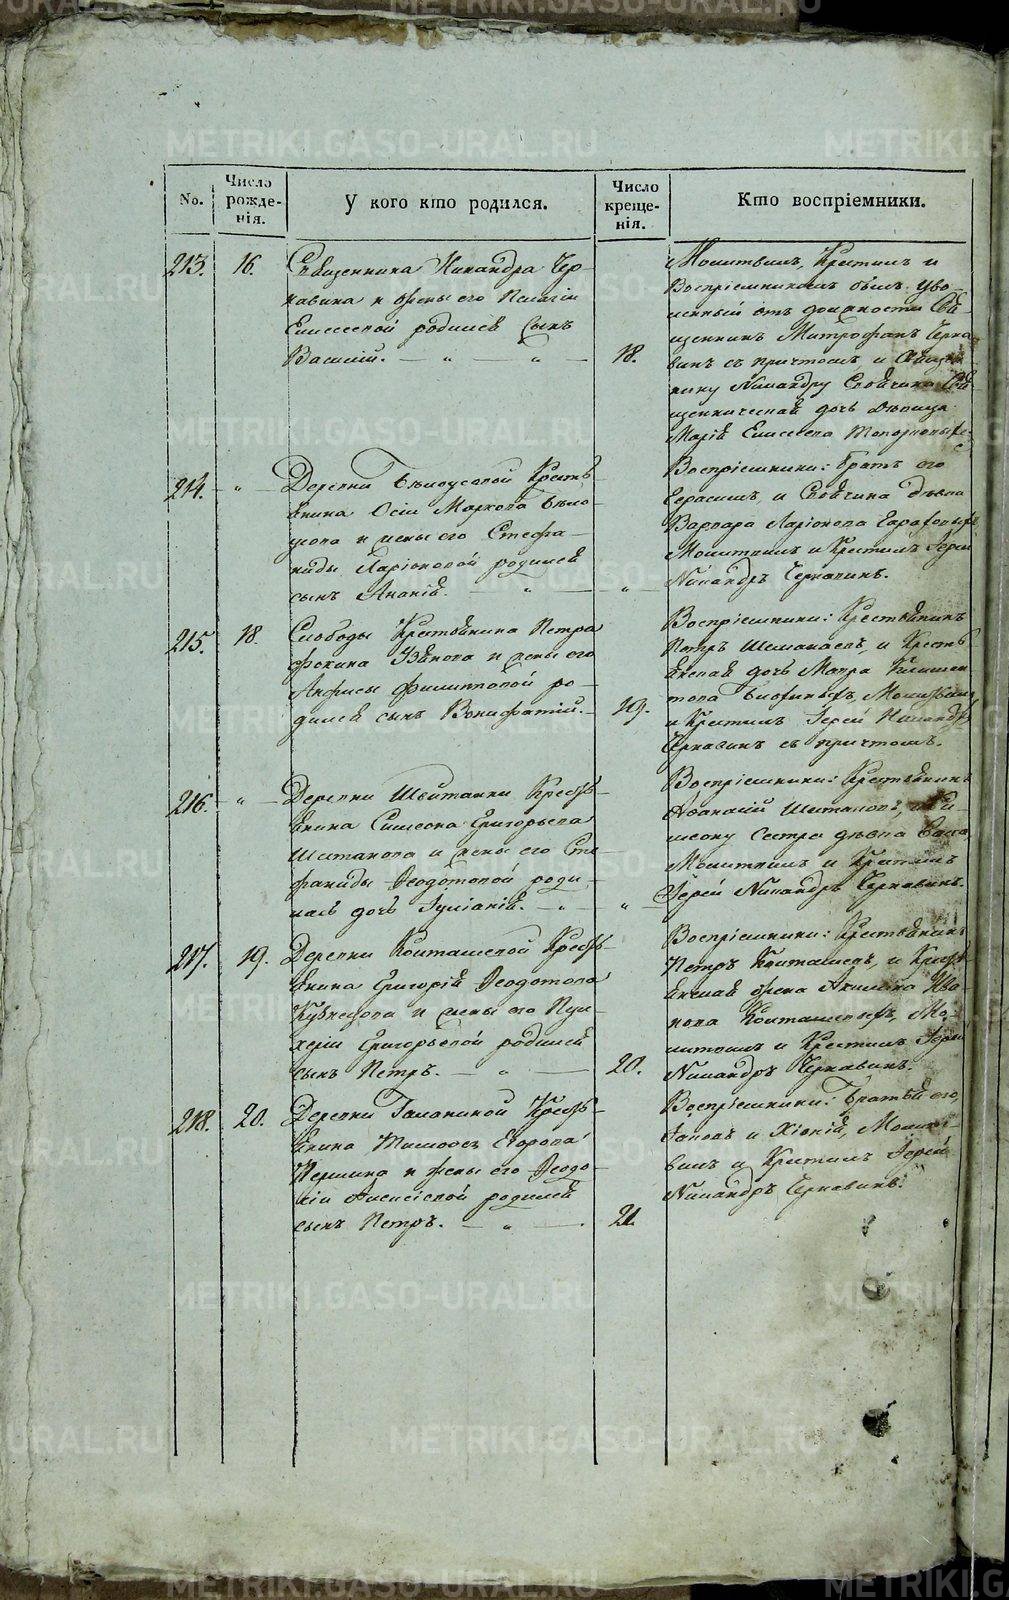 METRIKI.GASO-URAL.RU
No.
Число рожде-нія.
У кого кто родился.
Число креще-нія.
Кто воспріемники.
213.
16.
Священника Никандра Чер-
навина и жены его Пелагіи
Елисеевой родился сынъ
Василій.
18.
Молитвилъ, Крестилъ и
Воспріемникомъ былъ уво-
ленный отъ должности Свя-
щенникъ Митрофанъ Черна-
винъ съ причтомъ и
нику Никандру
щенническая дочь дѣвица
Марія Елисеева
214.
"
Деревни Бѣлоусовой Кресть
янина Осіи Маркова Бѣло
усова и жены его Стефа-
ниды Ларіоновой родился
сынъ Ананій.
"
Воспріемники: братъ его
Герасимъ, и дѣвка
Варвара Ларіонова
Молитвилъ и Крестилъ Іерей
Никандръ Чернавинъ.
215.
18.
Слободы Крестьянина Петра
Фокина и жены его
Анфисы Филипповой ро-
дился сынъ Вонифатій.
19.
Воспріемники: Крестьянинъ
Петръ и Кресть
янская дочь Мавра
Молитвилъ
и Крестилъ Іерей Никандръ
Чернавинъ съ причтомъ.
216.
"
Деревни Кресть-
янина Симеона Григорьева
и жены его Сте
фаниды Ѳеодотовой роди-
лась дочь Іуліанія.
"
Воспріемники: Крестьянинъ
Аѳанасій
сестра дѣвка
Молитвилъ и Крестилъ
Іерей Никандръ Чернавинъ.
217.
19.
Деревни Колташевой Кресть-
янина Григорія Ѳеодотова
Кузнецова и жены его Пул-
херіи Григорьевой родился
сынъ Петръ.
20.
Воспріемники: Крестьянинъ
Петръ Колташевъ, и Кресть
янская жена Акилина Ива
нова Колташевыхъ, Мо-
литвилъ и Крестилъ Іерей
Никандръ Чернавинъ.
218.
20.
Деревни Галаниной Кресть-
янина Тимоѳея Егорова
и жены его Ѳеодо-
сіи родился
сынъ Петръ.
21.
Воспріемники: братья его,
и Хіоній, Молит-
вилъ и Крестилъ Іерей
Никандръ Чернавинъ.